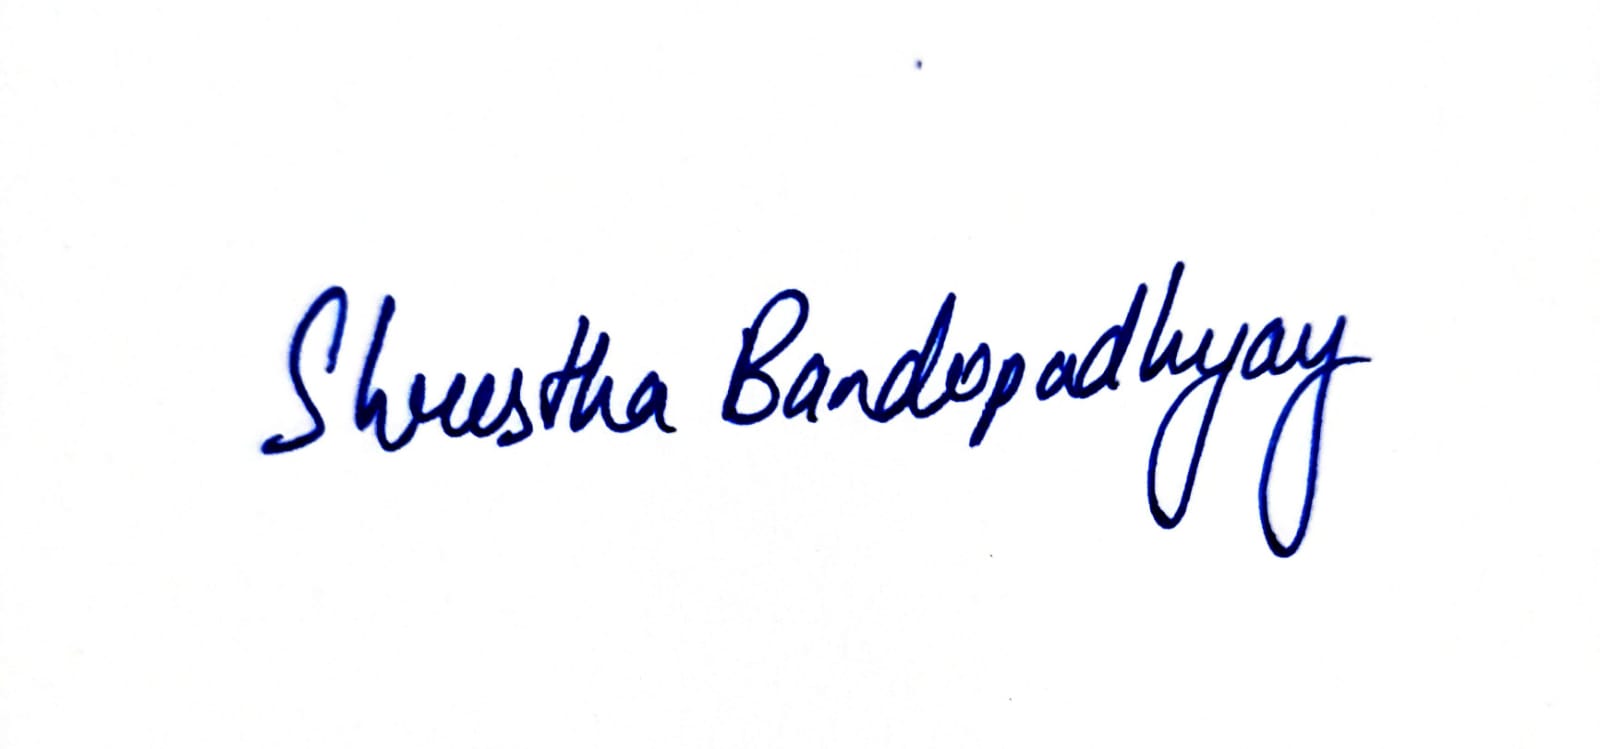 Shreestha Bandopadhyay